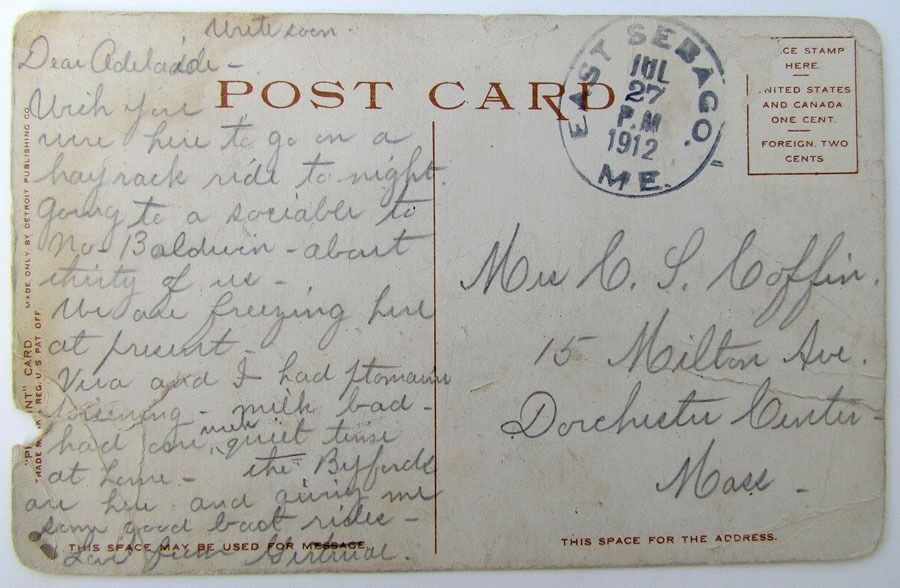 Write soon.
Dear Adelaide -
POST CARD
Wish you
were here to go on a
hayrack ride to night.
Going to a sociable to
No. Baldwin - about
thirty of us -
We are freezing here
at present -
Vera and I had ptomaine
poisoning - milk bad -
had one quiet time
at home. - the Byffords
are here and giving me
some good boat rides -
Love from Gertrude.
THIS SPACE MAY BE USED FOR MESSAGE.
MADE ONLY BY DETROIT PUBLISHING CO.
CARD.
REG. U.S. PAT. OFF.
EAST SEBAGO.
JUL
27
P.M
1912
ME.
CE STAMP
HERE.
NITED STATES
AND CANADA
ONE CENT.
FOREIGN, TWO
CENTS
Mrs C. S. Coffin.
15 Milton Ave.
Dorchester Center -
Mass -
THIS SPACE FOR THE ADDRESS.